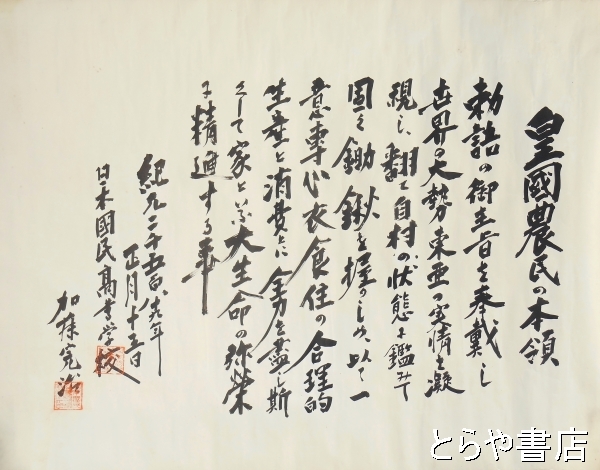 皇國農民の本領
勅語の御主旨を奉戴し
世界の大勢東亜の実情を凝
視し翻て自村の状態を鑑みて
固く鋤鍬を握りしめ以て一
意専心衣食住の合理的
生産と消費とに全力を盡し斯
くして家と云ふ大生命の弥栄
に精進する事
紀元二千五百九十年
正月十五日
日本國民高等学校
加藤完治
とらや書店